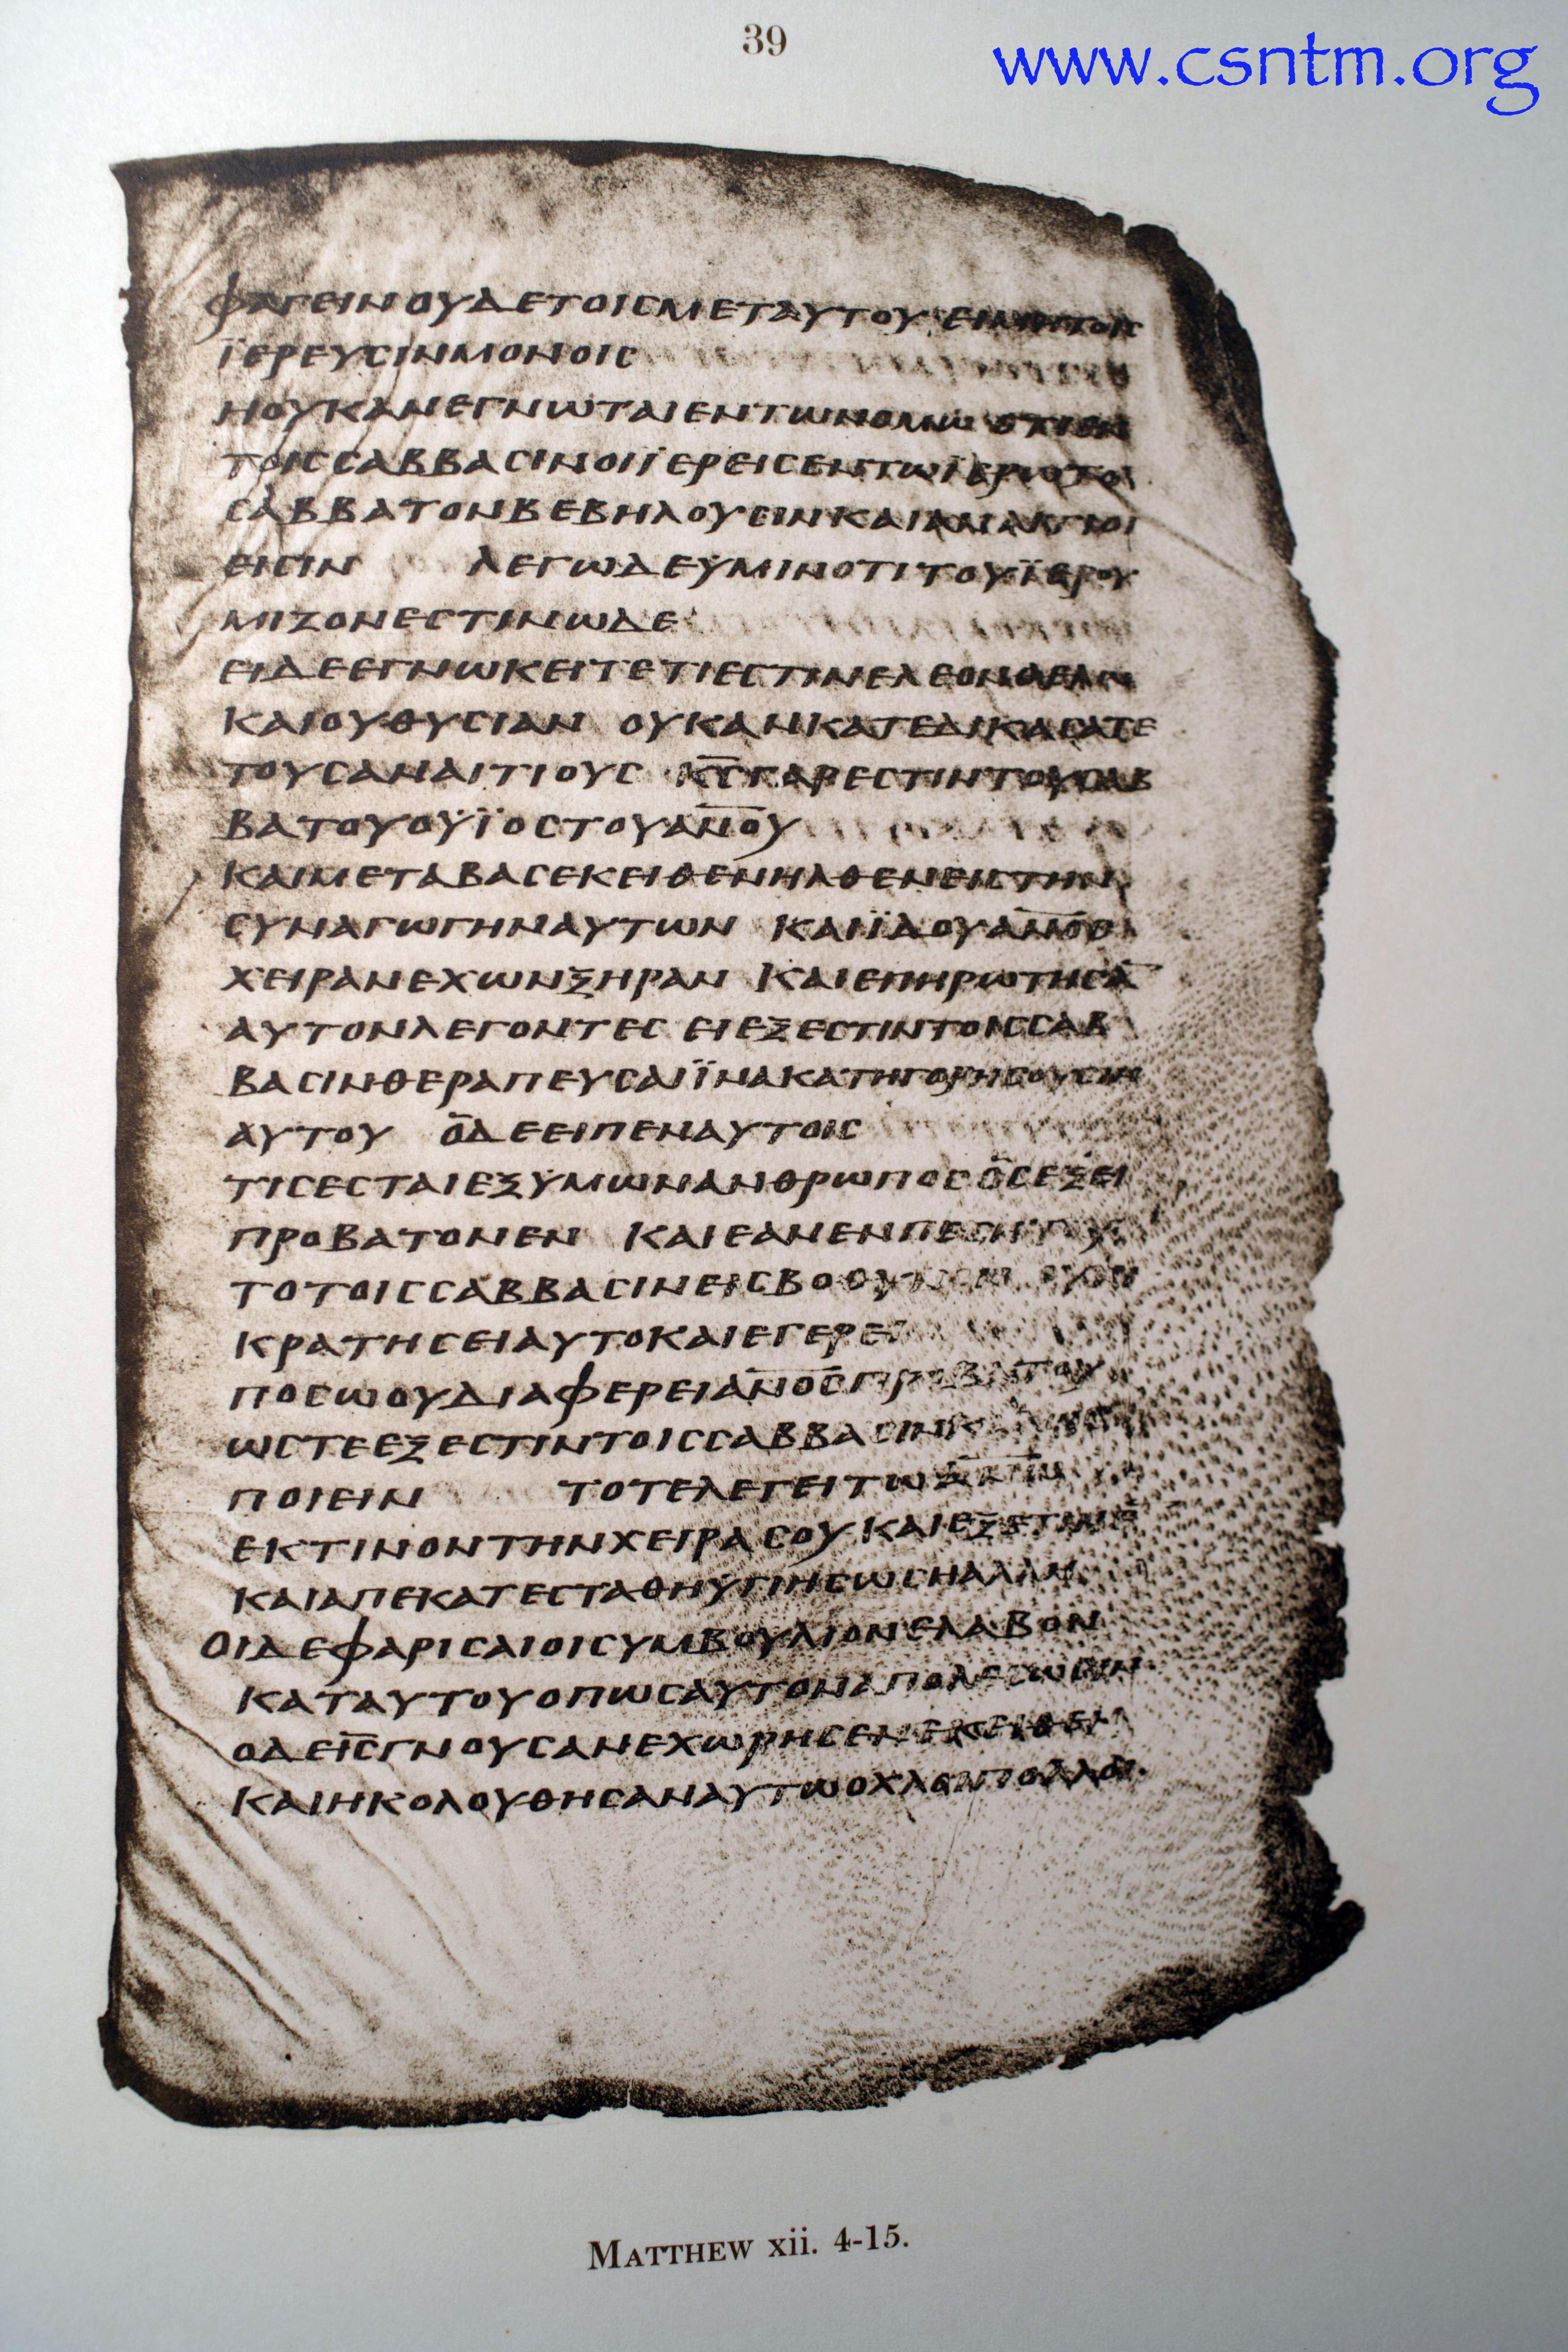 39
www.csntm.org
ΦΑΓΕΙΝΟΥΔΕΤΟΙϹΜΕΤΑΥΤΟΥ ΕΙΜΗΤΟΙϹ
ΪΕΡΕΥϹΙΝΜΟΝΟΙϹ
ΗΟΥΚΑΝΕΓΝΩΤΑΙΕΝΤΩΝΟΜΩ ΟΤΙΕΝ
ΤΟΙϹϹΑΒΒΑϹΙΝΟΙΪΕΡΕΙϹΕΝΤΩΪΕΡΩΤΟ
ϹΑΒΒΑΤΟΝΒΕΒΗΛΟΥΕΙΝΚΑΙΑΝΑΙΤΙΟΙ
ΕΙϹΙΝ ΛΕΓΩΔΕΫΜΙΝΟΤΙΤΟΥΪΕΡΟΥ
ΜΙΖΟΝΕϹΤΙΝΩΔΕ
ΕΙΔΕΕΓΝΩΚΕΙΤΕΤΙΕϹΤΙΝΕΛΕΟΝΘΕΛΩ
ΚΑΙΟΥΘΥϹΙΑΝ ΟΥΚΑΝΚΑΤΕΔΙΚΑϹΑΤΕ
ΤΟΥϹΑΝΑΙΤΙΟΥϹ Κ̅Ϲ̅ΓΑΡΕϹΤΙΝΤΟΥϹΑΒ
ΒΑΤΟΥΟΫΪΟϹΤΟΥΑ̅Ν̅Ο̅Υ̅
ΚΑΙΜΕΤΑΒΑϹΕΚΕΙΘΕΝΗΛΘΕΝΕΙϹΤΗΝ
ϹΥΝΑΓΩΓΗΝΑΥΤΩΝ ΚΑΙΪΔΟΥΑ̅Ν̅Ο̅Ϲ̅
ΧΕΙΡΑΝΕΧΩΝΞΗΡΑΝ ΚΑΙΕΠΗΡΩΤΗϹΑ̅
ΑΥΤΟΝΛΕΓΟΝΤΕϹ ΕΙΕΞΕϹΤΙΝΤΟΙϹϹΑΒ
ΒΑϹΙΝΘΕΡΑΠΕΥϹΑΙΪΝΑΚΑΤΗΓΟΡΗϹΟΥϹΙΝ
ΑΥΤΟΥ ΟΔΕΕΙΠΕΝΑΥΤΟΙϹ
ΤΙϹΕϹΤΑΙΕΞΫΜΩΝΑΝΘΡΩΠΟϹΟϹΕΞΕΙ
ΠΡΟΒΑΤΟΝΕΝ ΚΑΙΕΑΝΕΝΠΕϹΗΤΟΥ
ΤΟΤΟΙϹϹΑΒΒΑϹΙΝΕΙϹΒΟΘΥΝΟΝ ΟΥΧΙ
ΚΡΑΤΗϹΕΙΑΥΤΟΚΑΙΕΓΕΡΕΙ
ΠΟϹΩΟΥΔΙΑΦΕΡΕΙΑ̅Ν̅Ο̅Ϲ̅ΠΡΟΒΑΤΟΥ
ΩϹΤΕΕΞΕϹΤΙΝΤΟΙϹϹΑΒΒΑϹΙΝΚΑΛΩϹ
ΠΟΙΕΙΝ ΤΟΤΕΛΕΓΕΙΤΩΑ̅Ν̅Ω̅
ΕΚΤΙΝΟΝΤΗΝΧΕΙΡΑϹΟΥ ΚΑΙΕΞΕΤΙΝΕ̅
ΚΑΙΑΠΕΚΑΤΕϹΤΑΘΗΫΓΙΗϹΩϹΗΑΛΛΗ
ΟΙΔΕΦΑΡΙϹΑΙΟΙϹΥΜΒΟΥΛΙΟΝΕΛΑΒΟΝ
ΚΑΤΑΥΤΟΥΟΠΩϹΑΥΤΟΝΑΠΟΛΕϹΩϹΙΝ
ΟΔΕΙ̅Ϲ̅ΓΝΟΥϹΑΝΕΧΩΡΗϹΕΝΕΚΕΙΘΕΝ
ΚΑΙΗΚΟΛΟΥΘΗϹΑΝΑΥΤΩΟΧΛΟΙΠΟΛΛΟΙ
MATTHEW xii. 4-15.